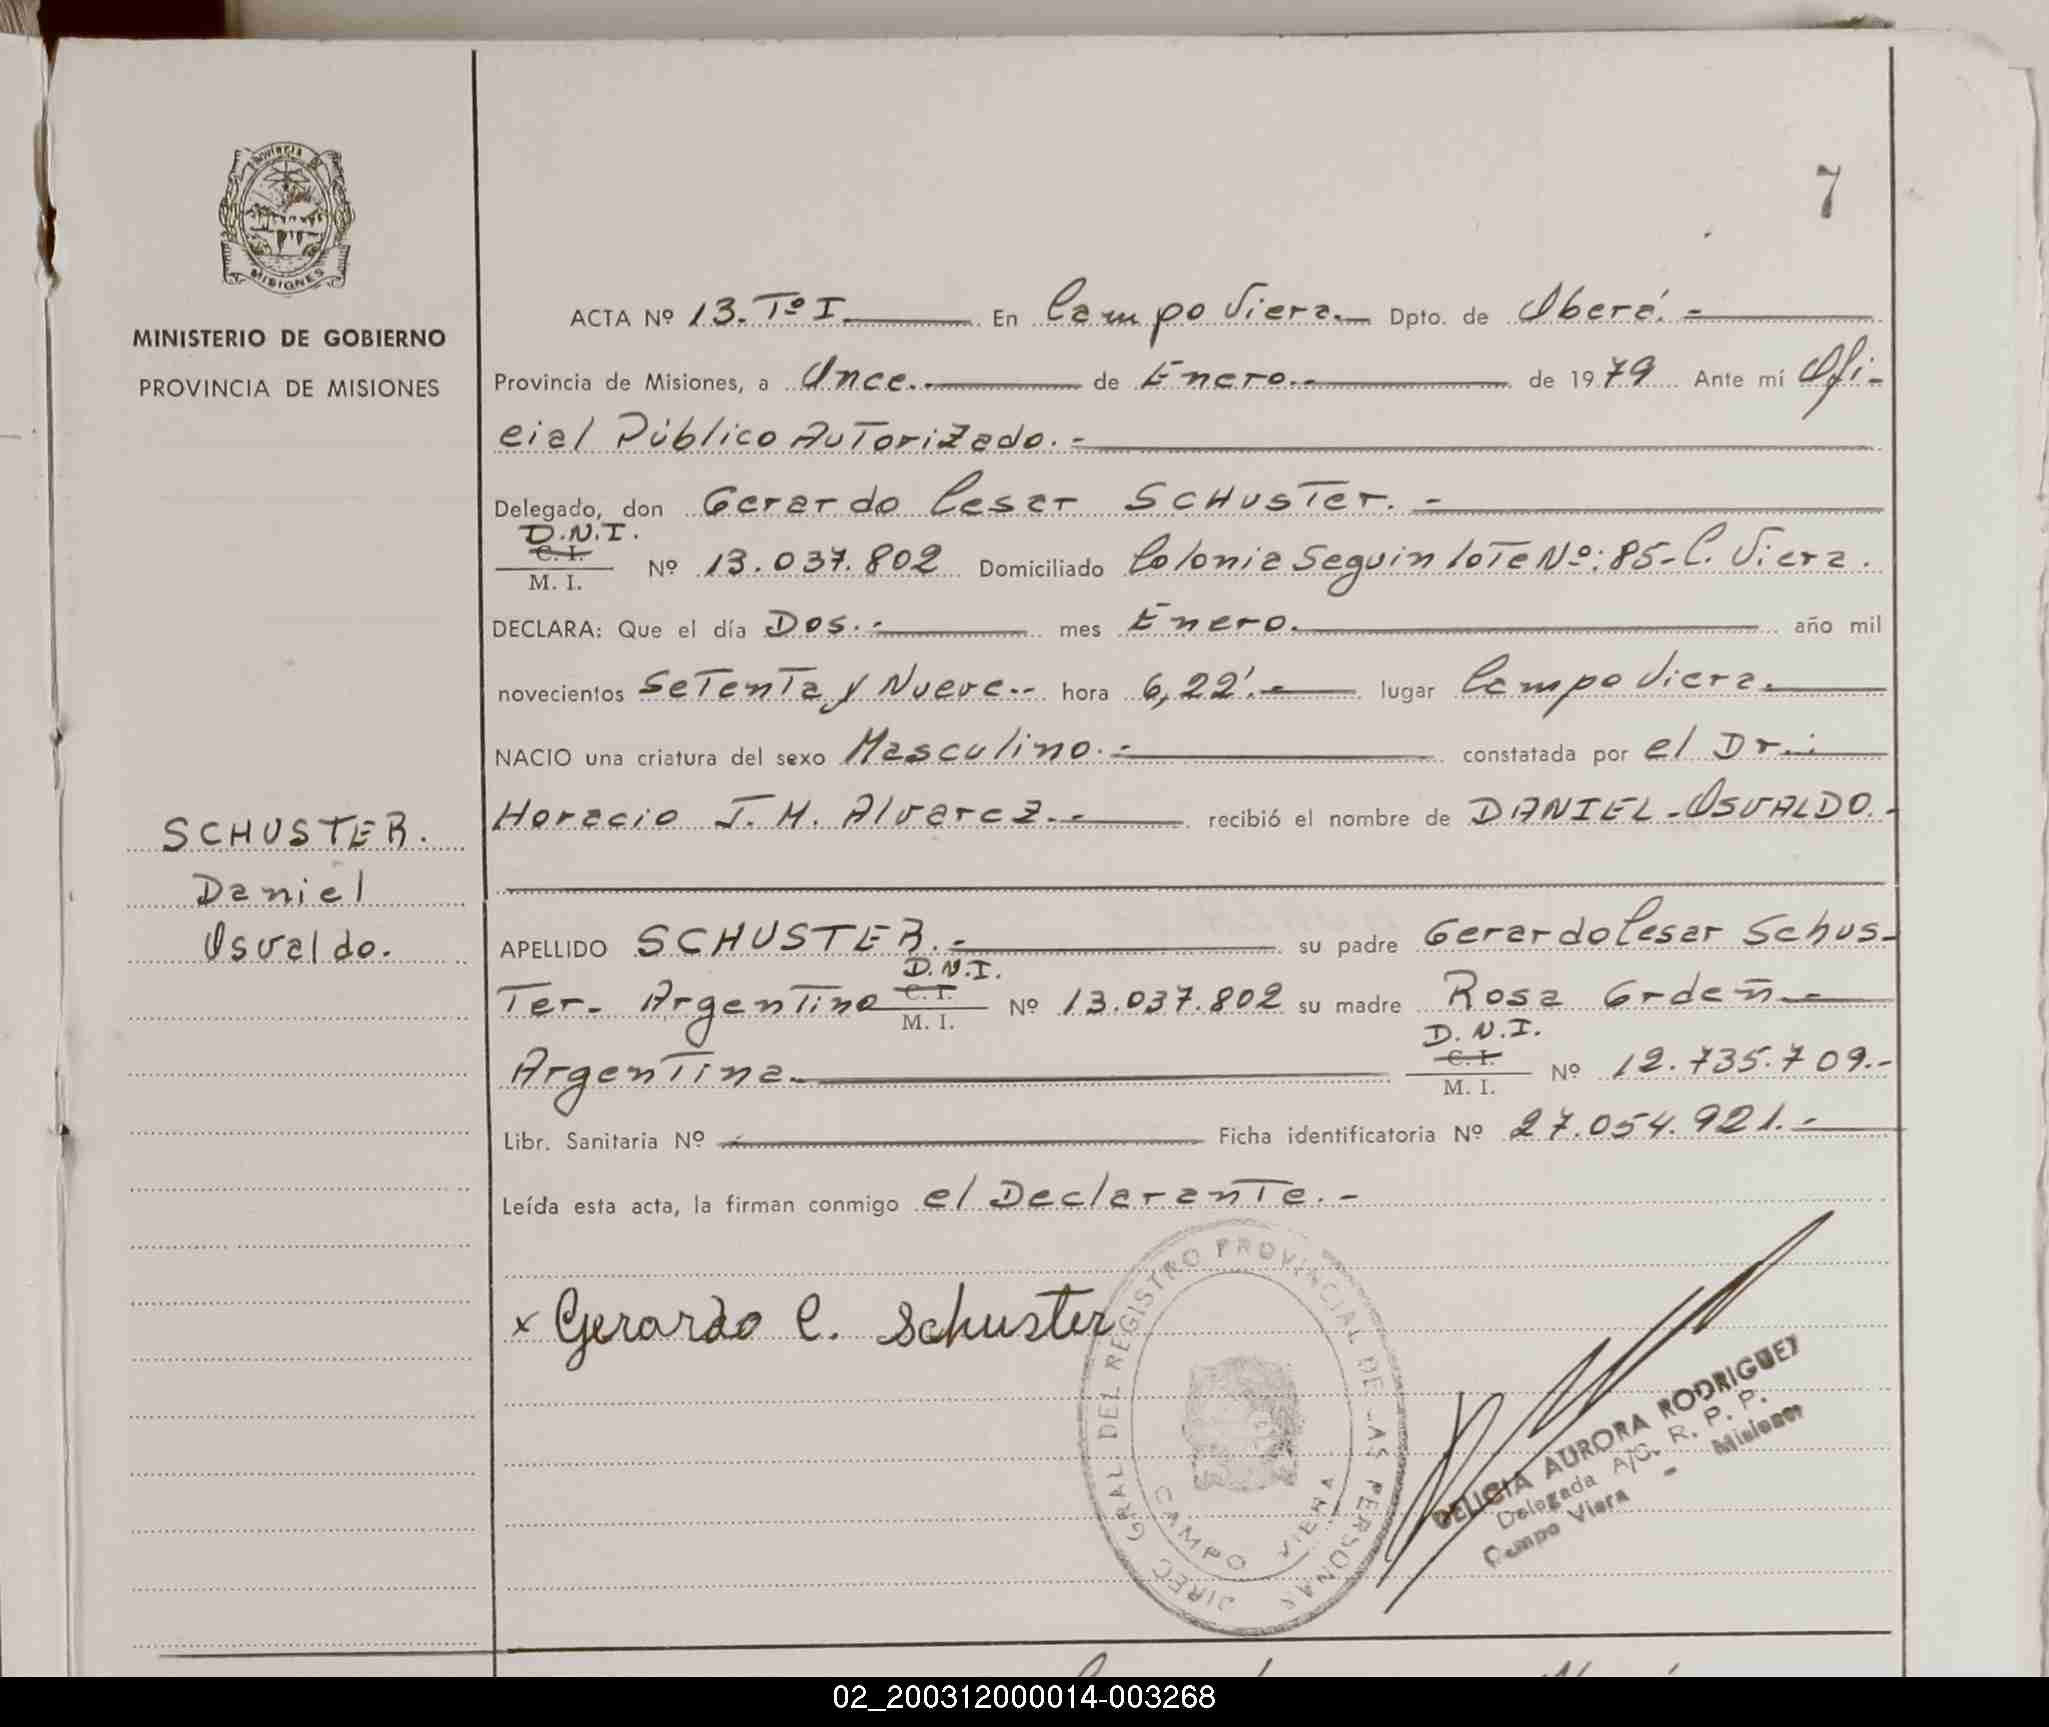 7
Provincia
MISIONES
MINISTERIO DE GOBIERNO
PROVINCIA DE MISIONES
SCHUSTER.
Daniel
Osvaldo.
ACTA Nº 13. Tº I. En Campo Viera.- Dpto. de Oberá.-
Provincia de Misiones, a Once.- de Enero.- de 1979 Ante mí Ofi-
cial Público Autorizado.-
Delegado, don Gerardo Cesar SCHUSTer.-
D.N.I.
C. I.
M. I. Nº 13.037.802 Domiciliado Colonia Seguin lote Nº: 85-C. Viera.
DECLARA: Que el día Dos.- mes Enero. año mil
novecientos Setenta y Nueve.- hora 6,22'.- lugar Campo Viera.
NACIO una criatura del sexo Masculino.- constatada por el Dr.:
Horacio J. M. Alvarez.- recibió el nombre de DANIEL-OSVALDO.-
APELLIDO SCHUSTER.- su padre Gerardo Cesar Schus-
D.N.I.
ter- Argentino C. I. Nº 13.037.802 su madre Rosa Grdeñ.-
M. I.
D.N.I.
Argentina. C. I. Nº 12.735.709.-
M. I.
Libr. Sanitaria Nº Ficha identificatoria Nº 27.054.921.-
Leída esta acta, la firman conmigo el Declarante.-
x Gerardo C. Schuster
DIREC. GRAL DEL REGISTRO PROVINCIAL DE LAS PERSONAS
CAMPO VIERA
DELICIA AURORA RODRIGUEZ
Delegada A/C. R. P. P.
Campo Viera - Misiones
02_200312000014-003268